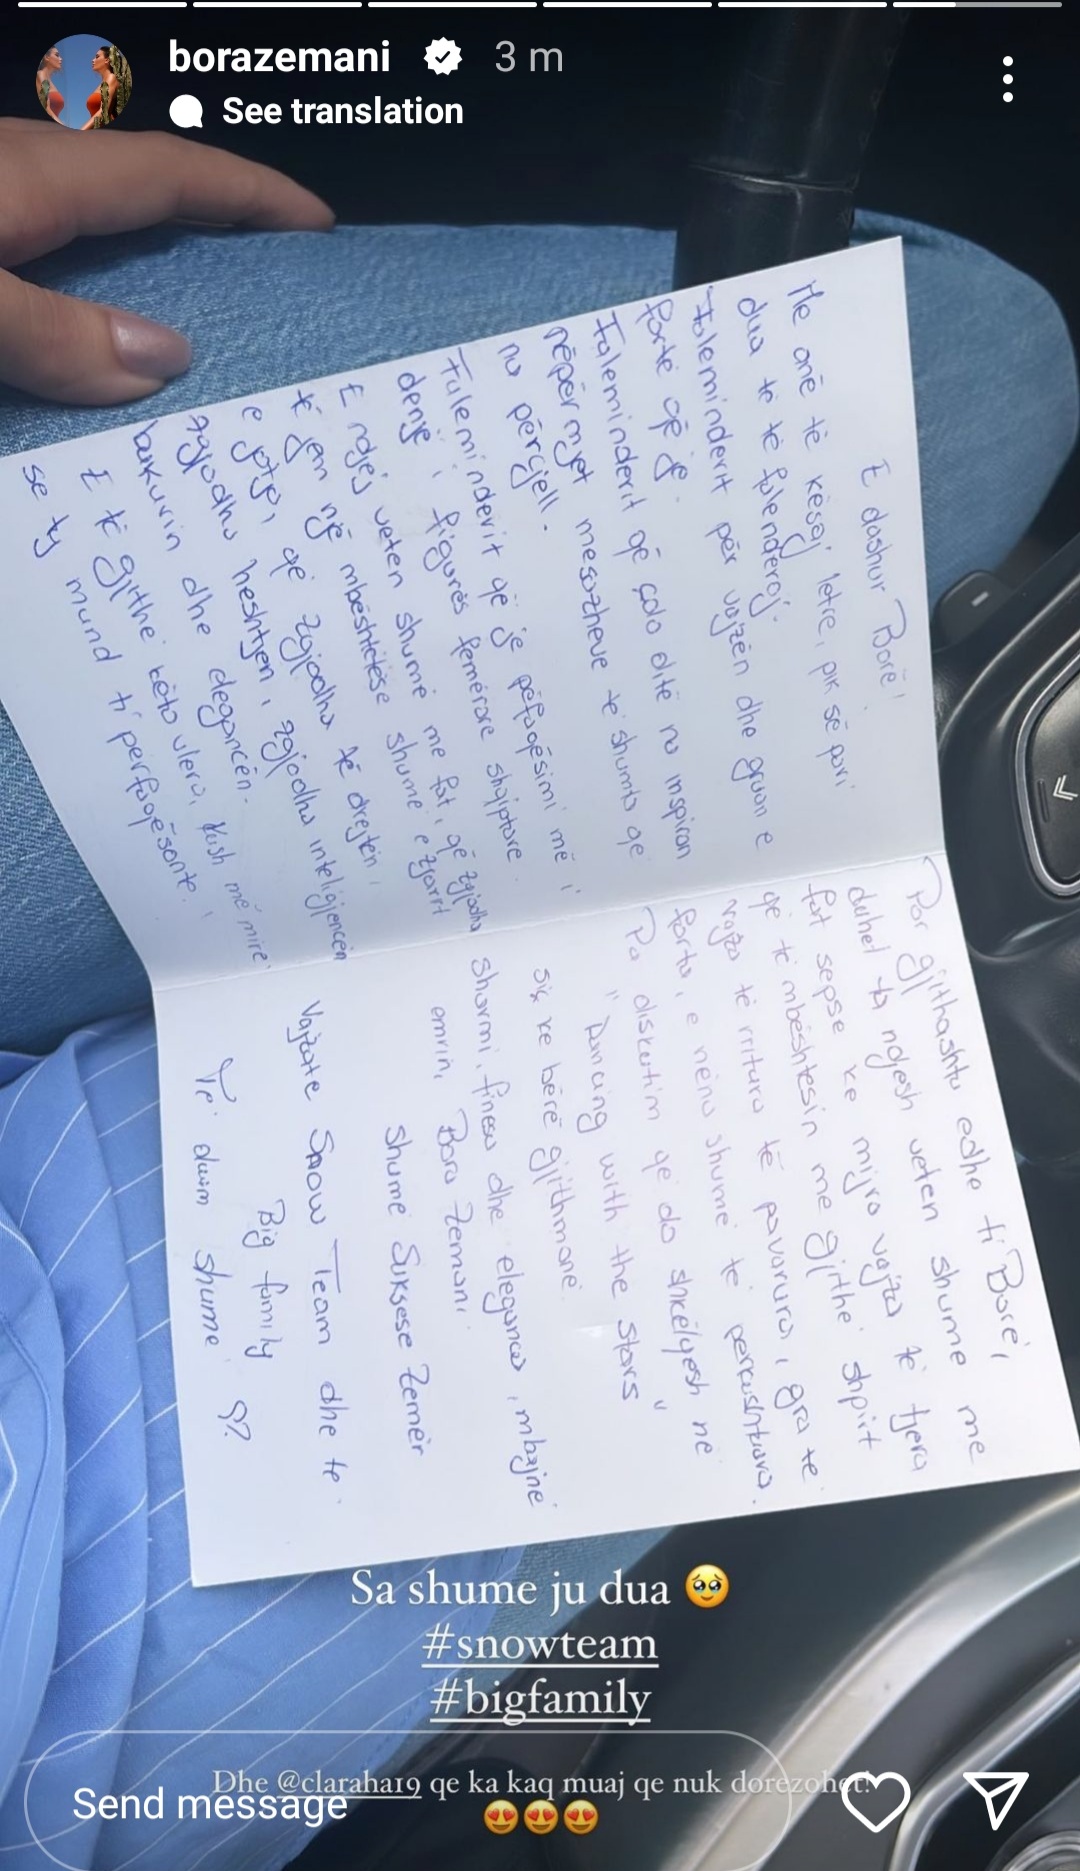 borazemani 3 m
See translation
E dashur Borë!
Me anë të kësaj letre, pik së pari
dua të të falenderoj.
Faleminderit për vajzën dhe gruan e
fortë që je.
Faleminderit që çdo ditë na inspiron
nëpërmjet mesazheve të shumta që
na përcjell.
Faleminderit që je përfaqësimi më i
denjë i figurës femërore shqiptare.
E ndjej veten shumë me fat, që zgjodha
të jem një mbështetëse shumë e zjarrt
e jotja, që zgjodha të drejtën,
zgjodha heshtjen, zgjodha inteligjencën
bukurin dhe elegancën.
E të gjithe këto vlera, kush më mirë
se ty mund ti perfaqësonte.
Por gjithashtu edhe ti Borë,
duhet ta ndjesh veten shume me
fat sepse ke mijra vajza të tjera
që të mbështesin me gjithë shpirt
vajza të rritura të pavarura, gra të
forta, e nëna shumë të perkushtuara.
Pa diskutim që do shkëlqesh në
"Dancing with the stars"
siç ke bërë gjithmonë.
sharmi, finesa dhe eleganca, mbajnë
emrin, Bora Zemani.
Shumë Suksese Zemër
Vajzate Snow Team dhe te
Big family
Të duam shumë
Sa shume ju dua 🥹
#snowteam
#bigfamily
Dhe @clarahar9 qe ka kaq muaj qe nuk dorezohet!
😍😍😍
Send message